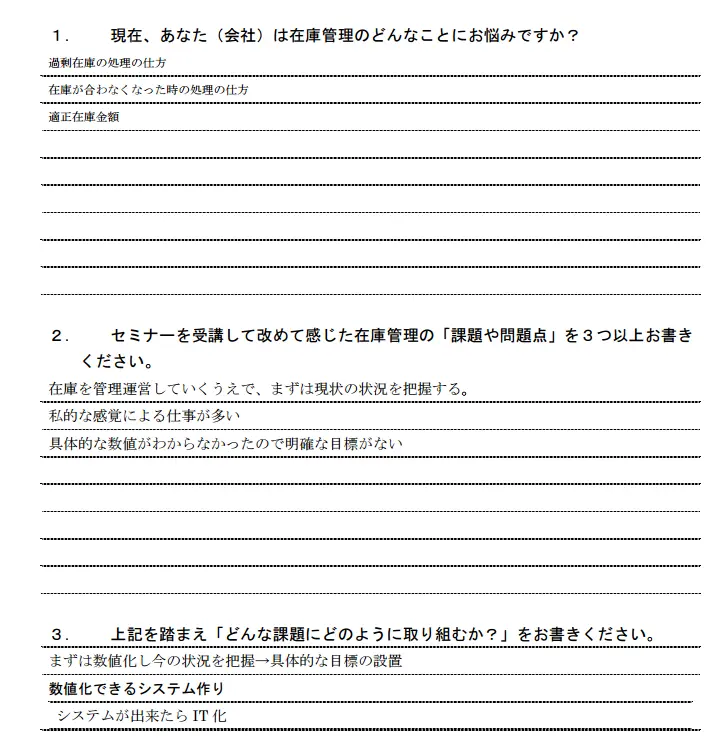 １． 現在、あなた（会社）は在庫管理のどんなことにお悩みですか？
過剰在庫の処理の仕方
在庫が合わなくなった時の処理の仕方
適正在庫金額
２． セミナーを受講して改めて感じた在庫管理の「課題や問題点」を３つ以上お書き
ください。
在庫を管理運営していくうえで、まずは現状の状況を把握する。
私的な感覚による仕事が多い
具体的な数値がわからなかったので明確な目標がない
３． 上記を踏まえ「どんな課題にどのように取り組むか？」をお書きください。
まずは数値化し今の状況を把握→具体的な目標の設置
数値化できるシステム作り
システムが出来たら IT 化